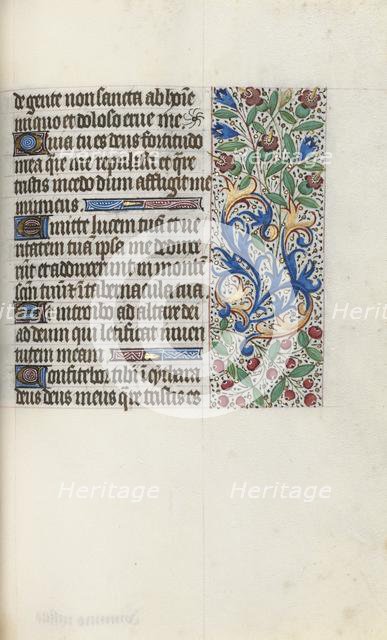 de gente non sancta ab hoīe
iniquo et doloso erue me
Quia tu es deus fortitudo
mea que me repulisti et qre
tristis incedo dum affligit me
inimicus.
Emitte lucem tuā et ue
ritatem tuā ipse me deduxe
rūt et adduxerunt in montem
som tuū et ī tabernacula tua.
Et introibo ad altare dei
ad deum qui letificat iuuen
tutem meam
Confitebor tibi ī cythara
deus deus meus qre tristis es
Heritage Heritage
Heritage Heritage
Heritage Heritage